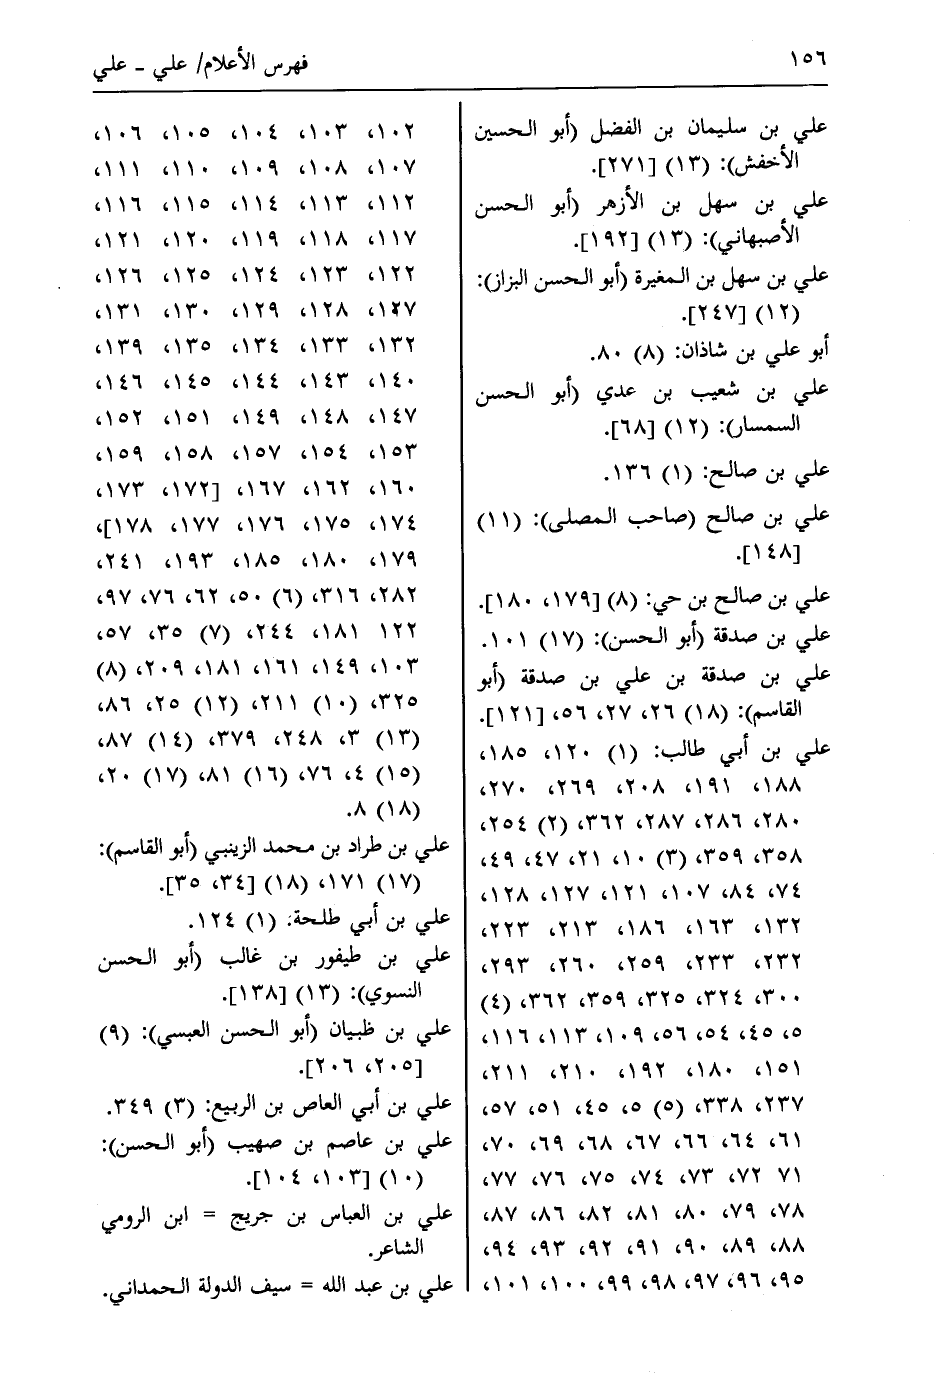 ١٥٦
فهرس الأعلام/ علي ـ علي
علي بن سليمان بن الفضل (أبو الحسين
الأخفش): (١٣) [٢٧١].
علي بن سهل بن الأزهر (أبو الحسن
الأصبهاني): (١٣) [١٩٢].
علي بن سهل بن المغيرة (أبو الحسن البزاز):
(١٢) [٢٤٧].
أبو علي بن شاذان: (٨) ٨٠.
علي بن شعيب بن عدي (أبو الحسن
السمسار): (١٢) [٦٨].
علي بن صالح: (١) ١٣٦.
علي بن صالح (صاحب المصلى): (١١)
[١٤٨].
علي بن صالح بن حي: (٨) [١٧٩، ١٨٠].
علي بن صدقة (أبو الحسن): (١٧) ١٠١.
علي بن صدقة بن علي بن صدقة (أبو
القاسم): (١٨) ٢٦، ٢٧، ٥٦، [١٢١].
علي بن أبي طالب: (١) ١٢٠، ١٨٥،
١٨٨، ١٩١، ٢٠٨، ٢٦٩، ٢٧٠،
٢٨٠، ٢٨٦، ٢٨٧، ٣٦٢، (٢) ٢٥٤،
٣٥٨، ٣٥٩، (٣) ١٠، ٢١، ٤٧، ٤٩،
٧٤، ٨٤، ١٠٧، ١٢١، ١٢٧، ١٢٨،
١٣٢، ١٦٣، ١٨٦، ٢١٣، ٢٢٣،
٢٣٢، ٢٣٣، ٢٥٩، ٢٦٠، ٢٩٣،
٣٠٠، ٣٢٤، ٣٢٥، ٣٥٩، ٣٦٢، (٤)
٥، ٤٥، ٥٤، ٥٦، ١٠٩، ١١٣، ١١٦،
١٥١، ١٨٠، ١٩٢، ٢١٠، ٢١١،
٢٣٧، ٣٣٨، (٥) ٥، ٤٥، ٥١، ٥٧،
٦١، ٦٤، ٦٦، ٦٧، ٦٨، ٦٩، ٧٠،
٧١ ٧٢، ٧٣، ٧٤، ٧٥، ٧٦، ٧٧،
٧٨، ٧٩، ٨٠، ٨١، ٨٢، ٨٦، ٨٧،
٨٨، ٨٩، ٩٠، ٩١، ٩٢، ٩٣، ٩٤،
٩٥، ٩٦، ٩٧، ٩٨، ٩٩، ١٠٠، ١٠١،
١٠٢، ١٠٣، ١٠٤، ١٠٥، ١٠٦،
١٠٧، ١٠٨، ١٠٩، ١١٠، ١١١،
١١٢، ١١٣، ١١٤، ١١٥، ١١٦،
١١٧، ١١٨، ١١٩، ١٢٠، ١٢١،
١٢٢، ١٢٣، ١٢٤، ١٢٥، ١٢٦،
١٢٧، ١٢٨، ١٢٩، ١٣٠، ١٣١،
١٣٢، ١٣٣، ١٣٤، ١٣٥، ١٣٩،
١٤٠، ١٤٣، ١٤٤، ١٤٥، ١٤٦،
١٤٧، ١٤٨، ١٤٩، ١٥١، ١٥٢،
١٥٣، ١٥٤، ١٥٧، ١٥٨، ١٥٩،
١٦٠، ١٦٢، ١٦٧، [١٧٢، ١٧٣،
١٧٤، ١٧٥، ١٧٦، ١٧٧، ١٧٨]،
١٧٩، ١٨٠، ١٨٥، ١٩٣، ٢٤١،
٢٨٢، ٣١٦، (٦) ٥٠، ٦٢، ٧٦، ٩٧،
١٢٢ ١٨١، ٢٤٤، (٧) ٣٥، ٥٧،
١٠٣، ١٤٩، ١٦١، ١٨١، ٢٠٩، (٨)
٣٢٥، (١٠) ٢١١، (١٢) ٢٥، ٨٦،
(١٣) ٣، ٢٤٨، ٣٧٩، (١٤) ٨٧،
(١٥) ٤، ٧٦، (١٦) ٨١، (١٧) ٢٠،
(١٨) ٨.
علي بن طراد بن محمد الزينبي (أبو القاسم):
(١٧) ١٧١، (١٨) [٣٤، ٣٥].
علي بن أبي طلحة: (١) ١٢٤.
علي بن طيفور بن غالب (أبو الحسن
النسوي): (١٣) [١٣٨].
علي بن ظبيان (أبو الحسن العبسي): (٩)
[٢٠٥، ٢٠٦].
علي بن أبي العاص بن الربيع: (٣) ٣٤٩.
علي بن عاصم بن صهيب (أبو الحسن):
(١٠) [١٠٣، ١٠٤].
علي بن العباس بن جريج = ابن الرومي
الشاعر.
علي بن عبد الله = سيف الدولة الحمداني.